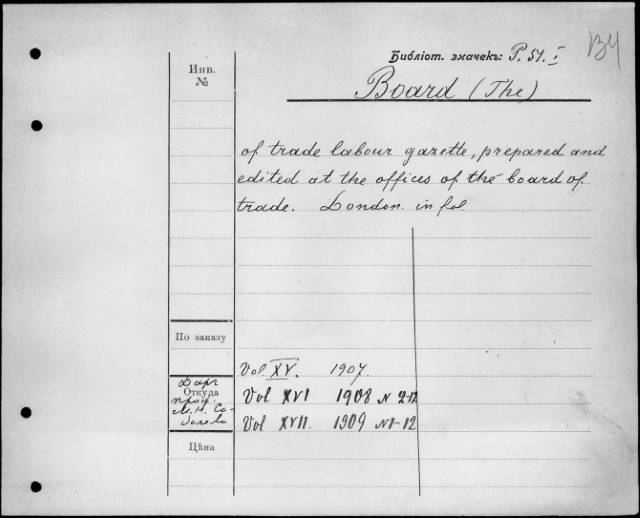 В4
Библіот. значекъ: Р. 51. I
Инв.
№
Board (The)
of trade labour gazette, prepared and
edited at the offices of the board of
trade. London. in fol.
По заказу
Vol XV. 1907.
Даръ
Откуда
проф.
М. Н. Со-
болева
Vol XVI 1908 N 2-12
Vol XVII. 1909 N 1-12
Цѣна